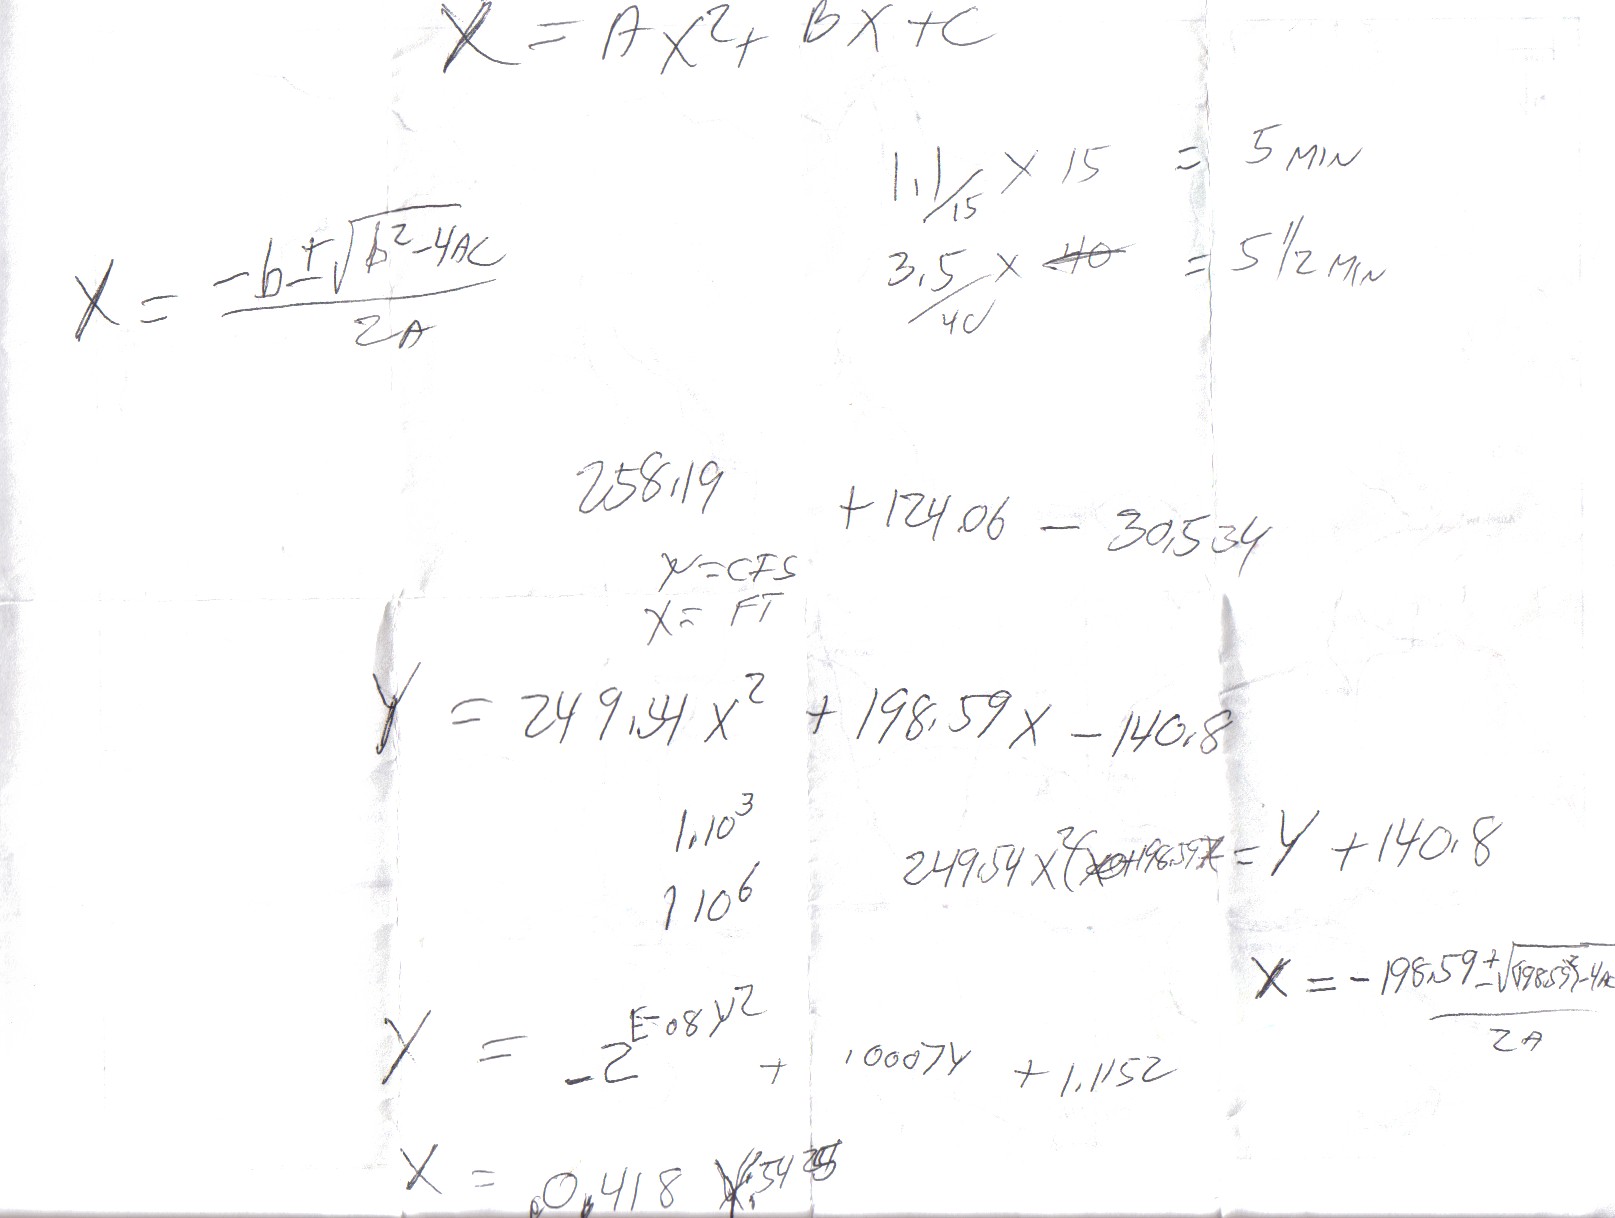 X = AX²+ BX+C
1.1/15 X 15 = 5 MIN
3.5/40 X 40 = 5 1/2 MIN
X = -b±√b²-4AC / 2A
258.19 +124.06 - 30.534
Y=CFS
X= FT
Y = 249.54 X² + 198.59X - 140.8
1.10³
1 10⁶
249.54 X² +198.59X = Y +140.8
X = -198.59±√(198.59²)-4AC / 2A
Y = -2E-08Y² + .0007Y + 1.1152
X = 0.418